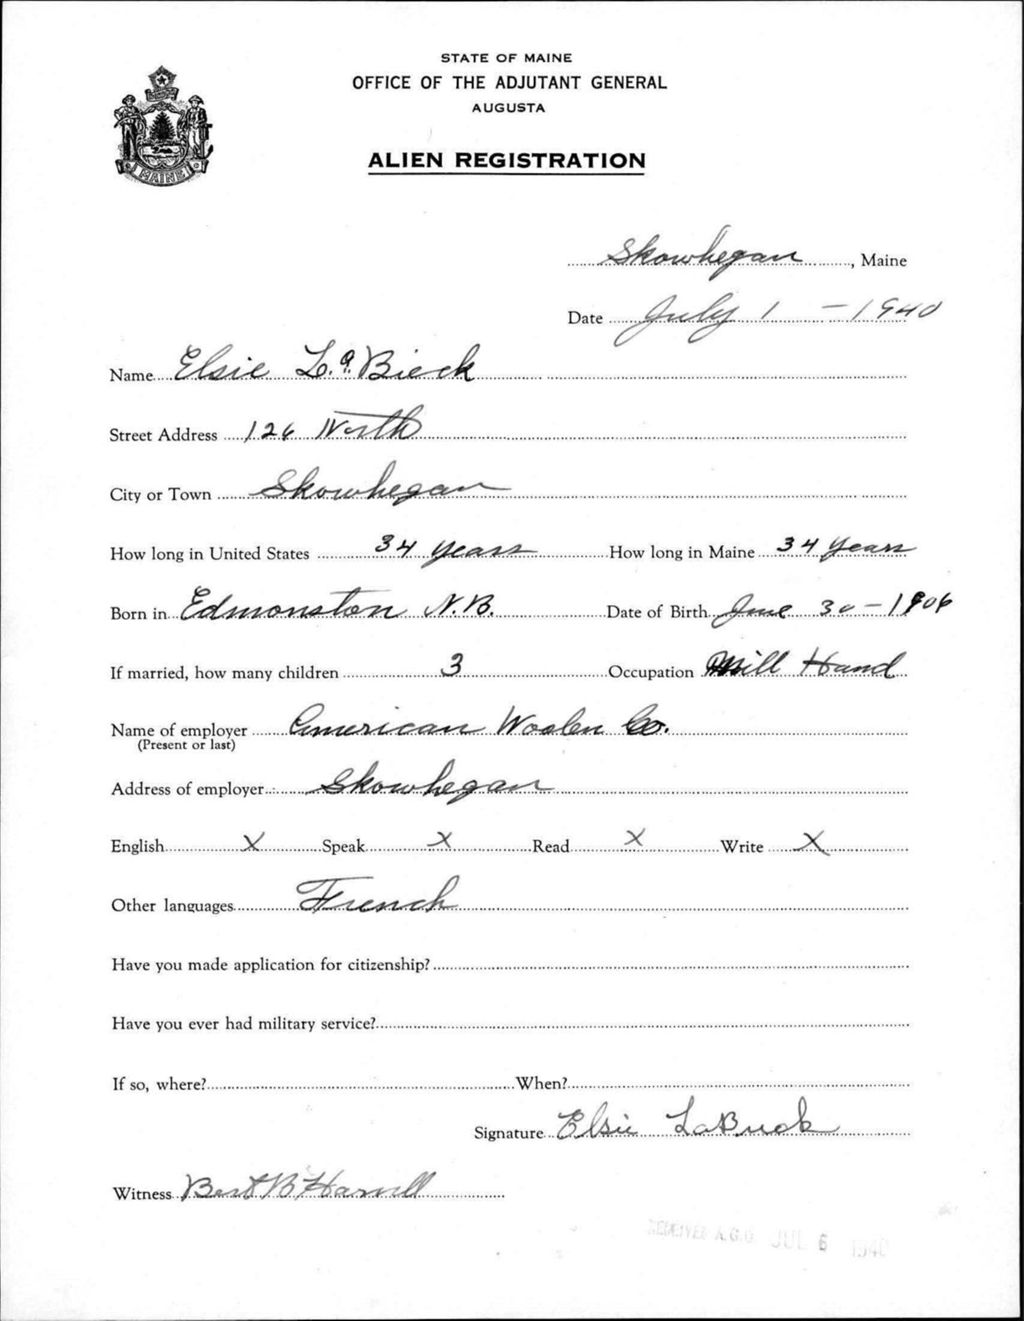 STATE OF MAINE
OFFICE OF THE ADJUTANT GENERAL
AUGUSTA
ALIEN REGISTRATION
MAINE
Skowhegan, Maine
Date July 1 - 1940
Name Elsie La Bieck
Street Address 126 North
City or Town Skowhegan
How long in United States 34 years How long in Maine 34 years
Born in Edmonston N.B. Date of Birth June 30 - 1906
If married, how many children 3 Occupation Mill Hand
Name of employer American Woolen Co.
(Present or last)
Address of employer Skowhegan
English X Speak X Read X Write X
Other languages French
Have you made application for citizenship?
Have you ever had military service?
If so, where? When?
Signature Elsie
Witness Bert B
RECEIVED A.G.O. JUL 6 1940